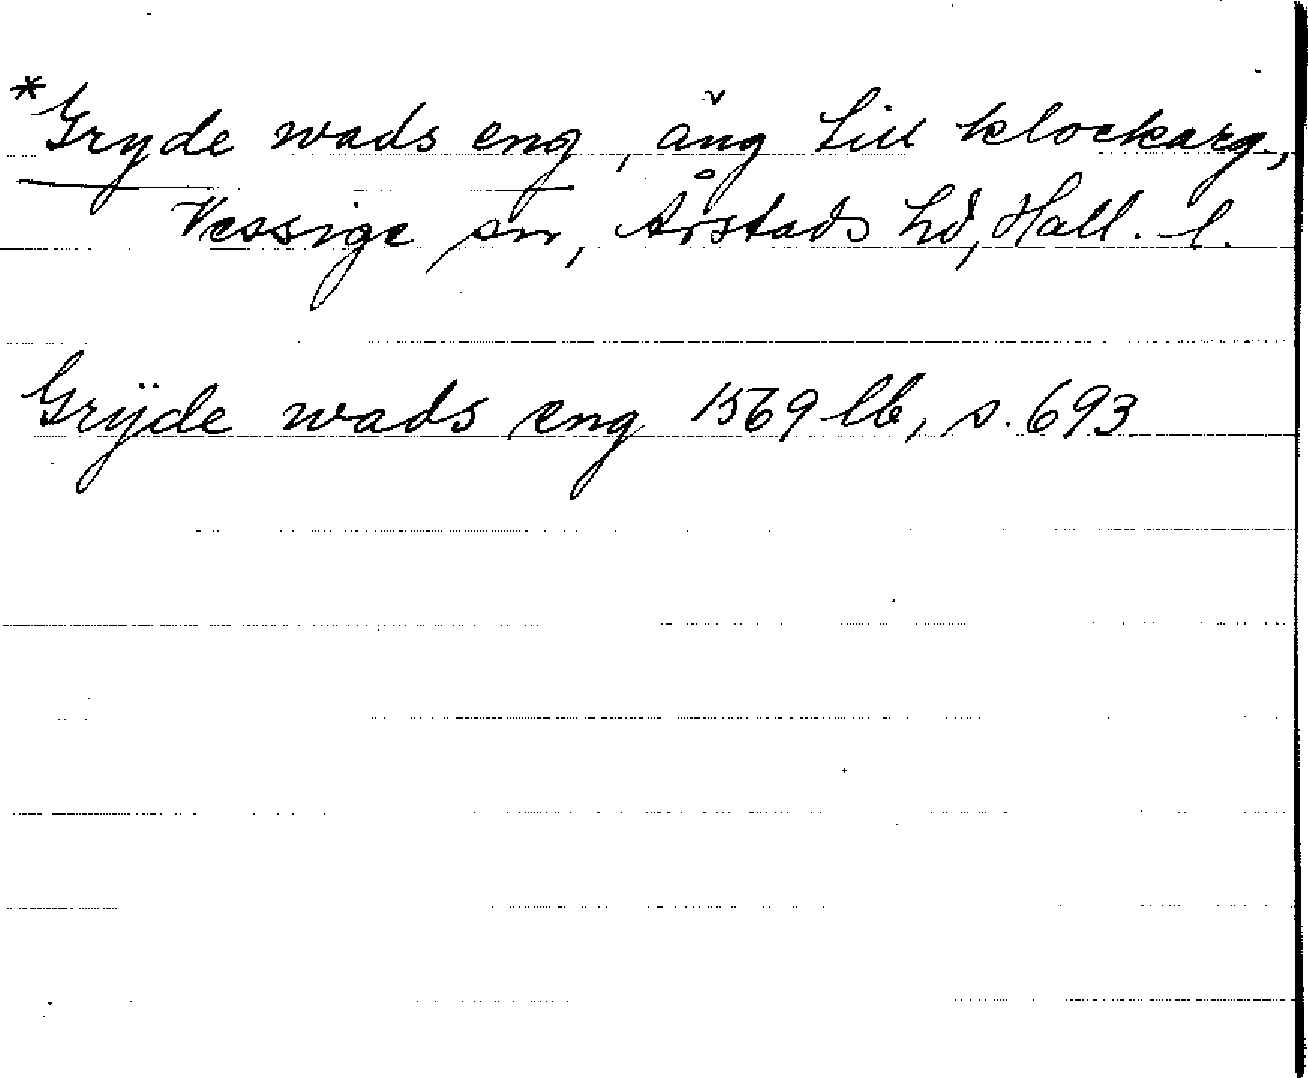 *Gryde wads eng, äng till klockarg.,
Vessige sn, Årstads hd, Hall. l.
Grÿde wads eng 1569 lb, s. 693